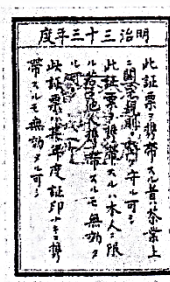 明治三十三年度
此証票ヲ携帯スル者ハ茶業上
ニ関スル規則ヲ守ル可シ
此証票ヲ携帯スルハ本人ニ限
ル若シ他人携帯スルモ無効タ
ル可シ
此証票ハ其年度証印ナキヲ携
帯スルモ無効タル可シ